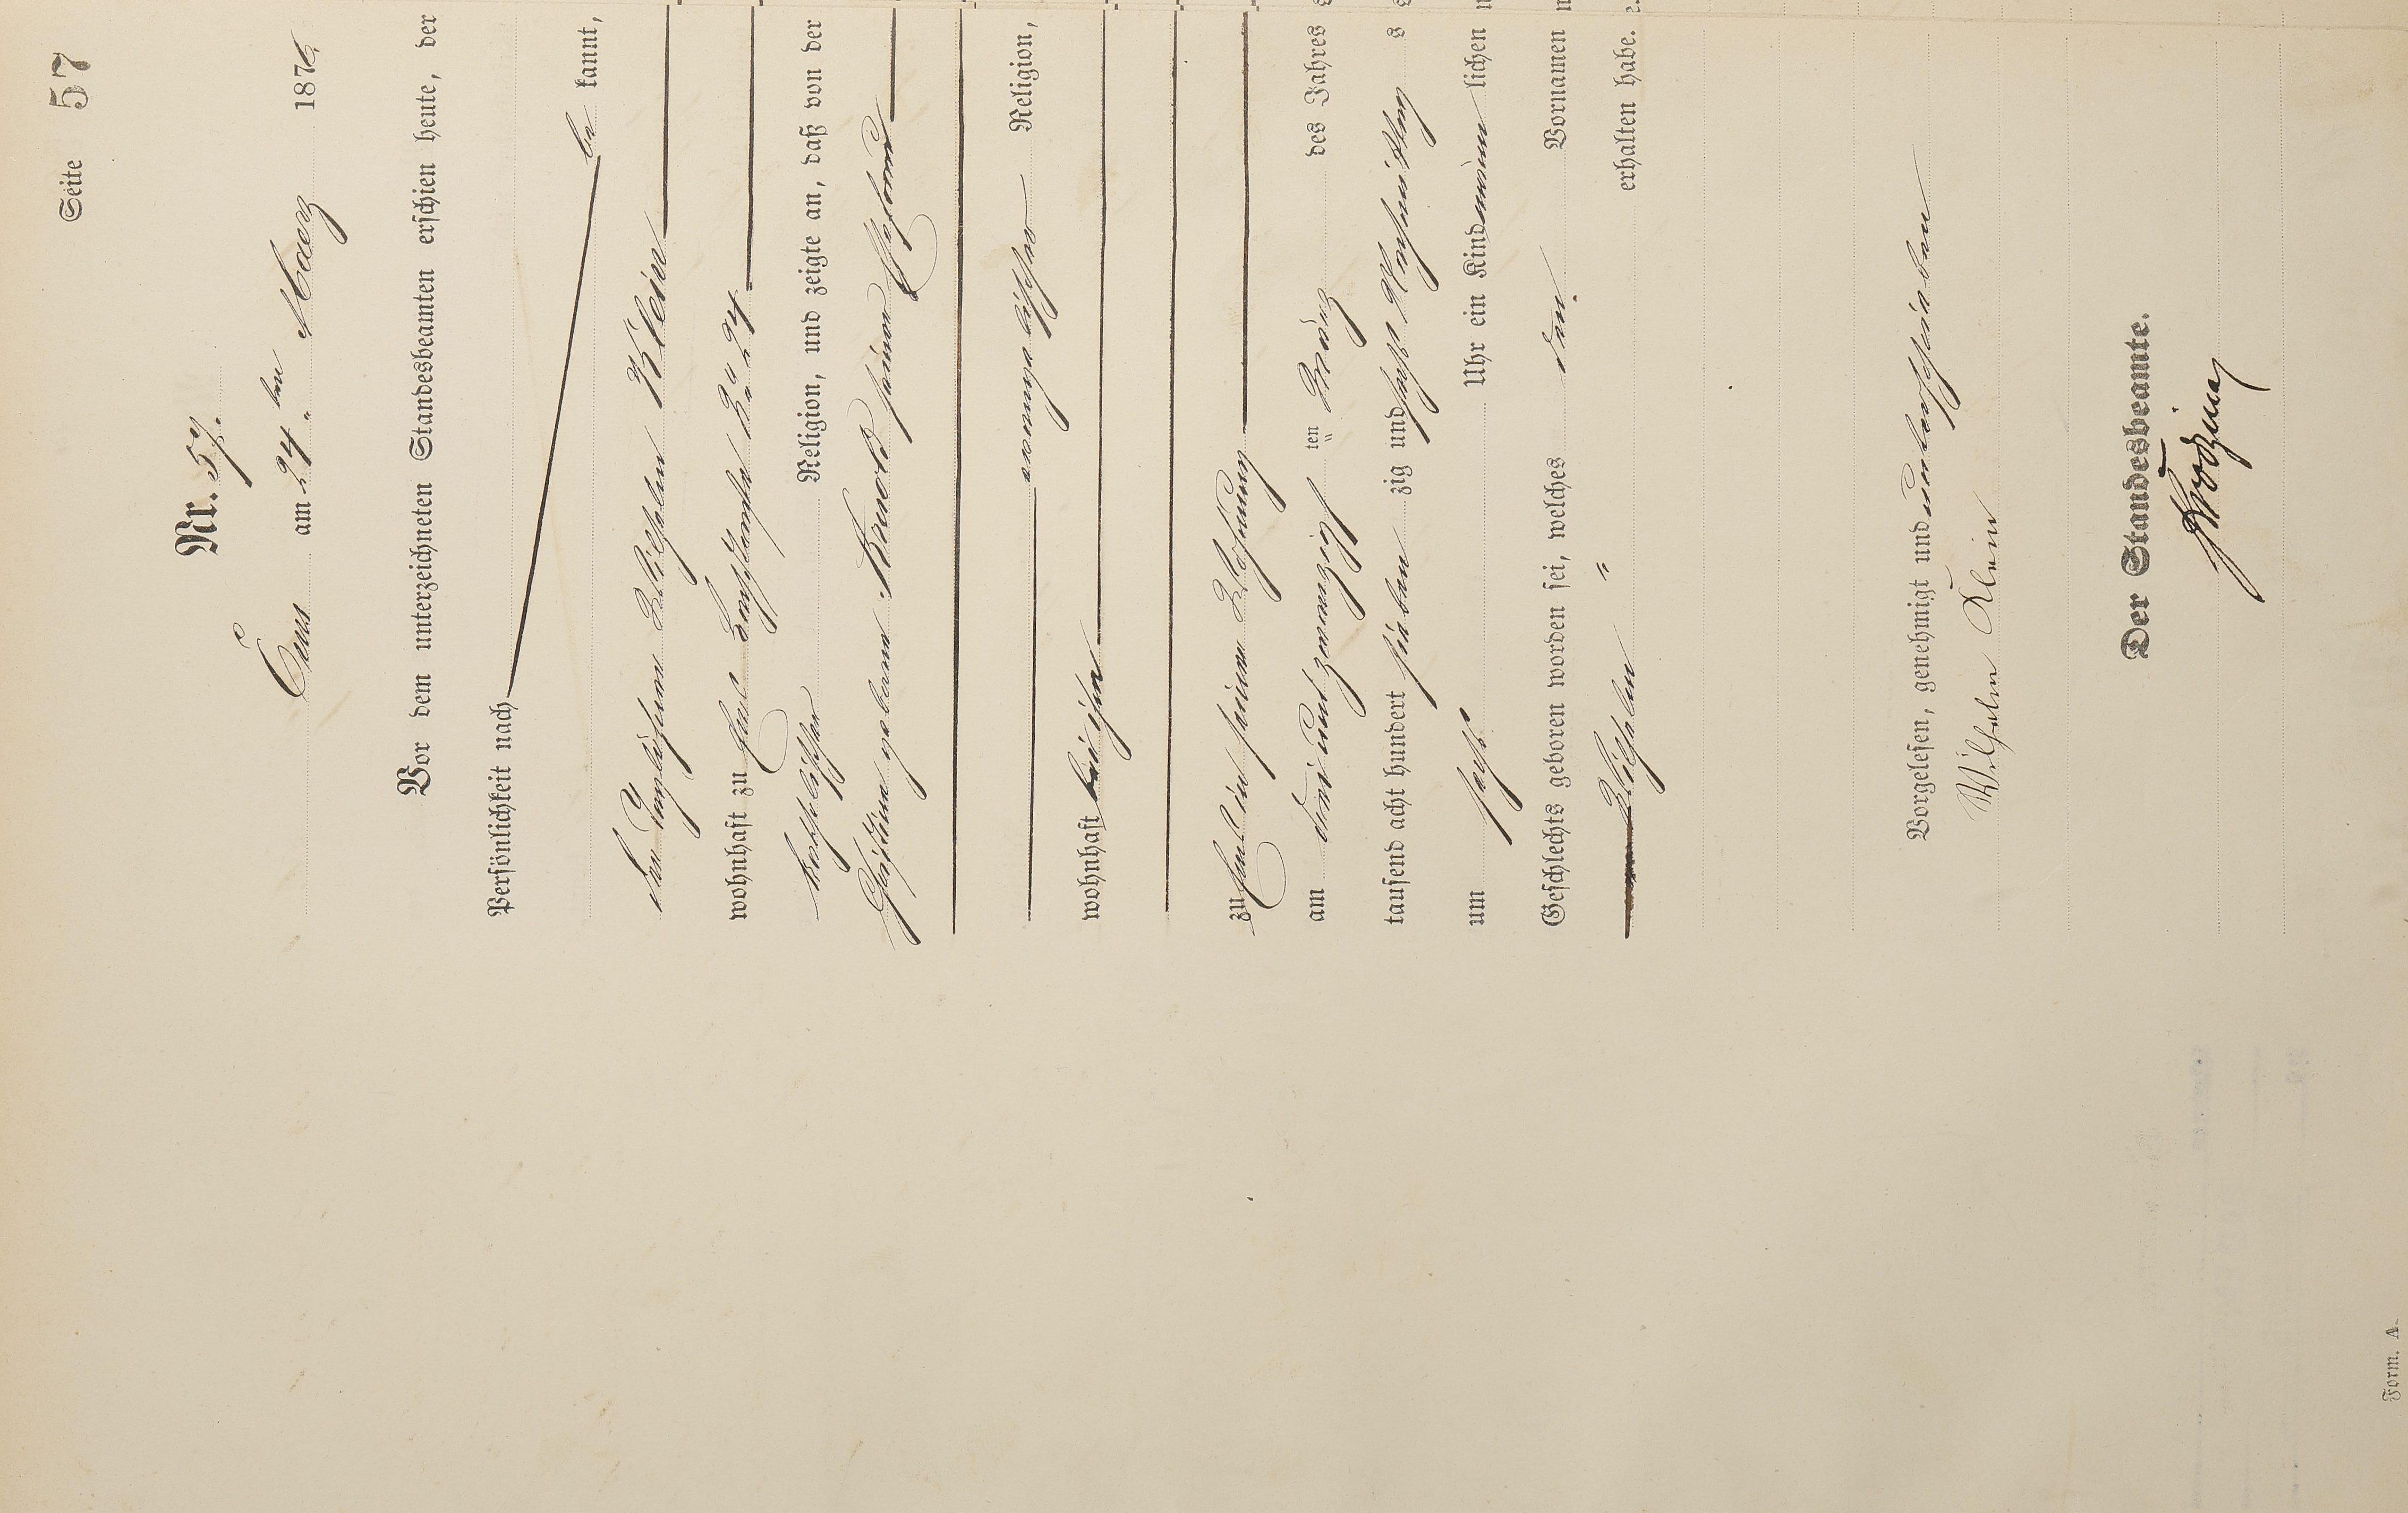 Seite 57
Nr. 57.
Ems am 24ten Maerz 1876.
Vor dem unterzeichneten Standesbeamten erschien heute, der
Persönlichkeit nach
be kannt,
der Wilhelm Klein
wohnhaft zu Ems No 24
katholischer Religion, und zeigte an, daß von der
Christine geborene seiner Ehefrau
evangelischer Religion,
wohnhaft bei ihm
zu Ems in seiner Wohnung
am drei und zwanzigsten März des Jahres
tausend acht hundert sieben zig und sechs Vormittags
um sechs Uhr ein Kind männ lichen
Geschlechts geboren worden sei, welches den Vornamen
Wilhelm
erhalten habe.
Vorgelesen, genehmigt und unterschrieben
Wilhelm Klein
Der Standesbeamte.
Form. A.